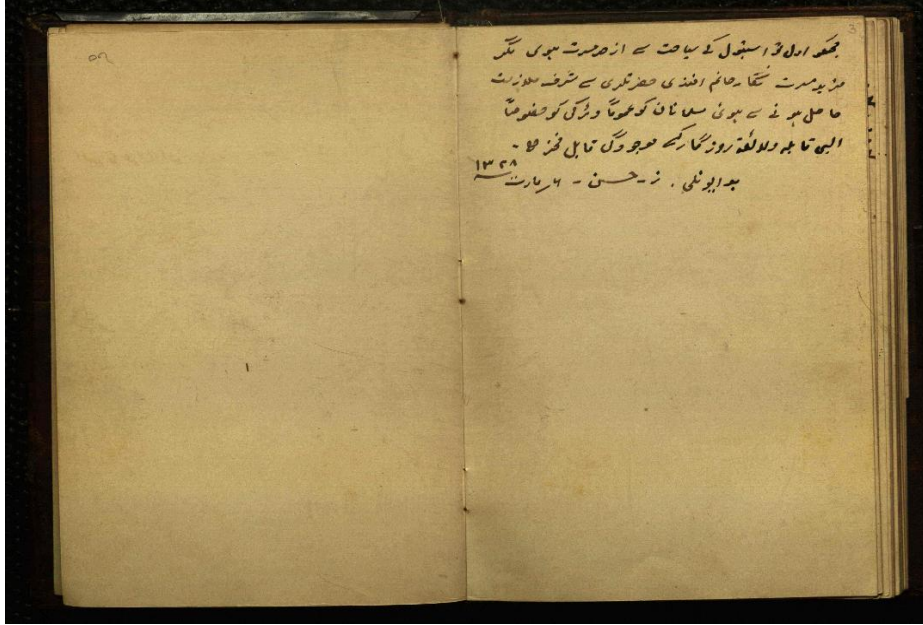 مجھکو اول تو استنبول کے سیاحت سے از حد مسرت ہوی مگر
مزید مسرت نگار خانم افندی حضرتلری سے شرف ملازمت
حاصل ہونے سے ہوئی مسلمانان کو عموماً و ترکی کو خصوصاً
ایسی قابلہ و لائقہ روزگار کے موجودگی قابل فخر ہے -
بدایونلی . ز - حسن - ۶ مارت سنہ ۱۳۲۸
3